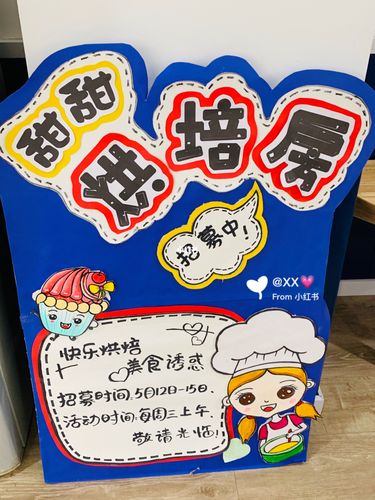 甜甜
烘焙房
招募中!
@XX
From 小红书
快乐烘焙
美食诱惑
招募时间:5月12日-15日
活动时间:每周三上午
敬请光临!